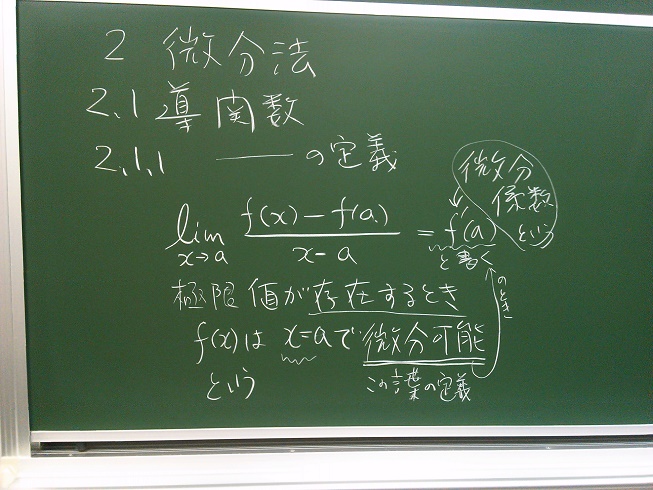 2 微分法
2.1 導関数
2.1.1 ―― の定義
lim x→a f(x)-f(a) / x-a = f'(a)
と書く
微分
係数
という
極限値が存在するとき
f(x)は x=aで微分可能
という
この言葉の定義
のとき